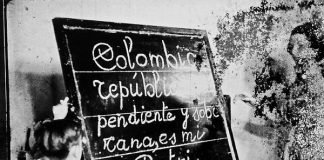 Colombia
república
pendiente y sobe
rana, es mi
Patri